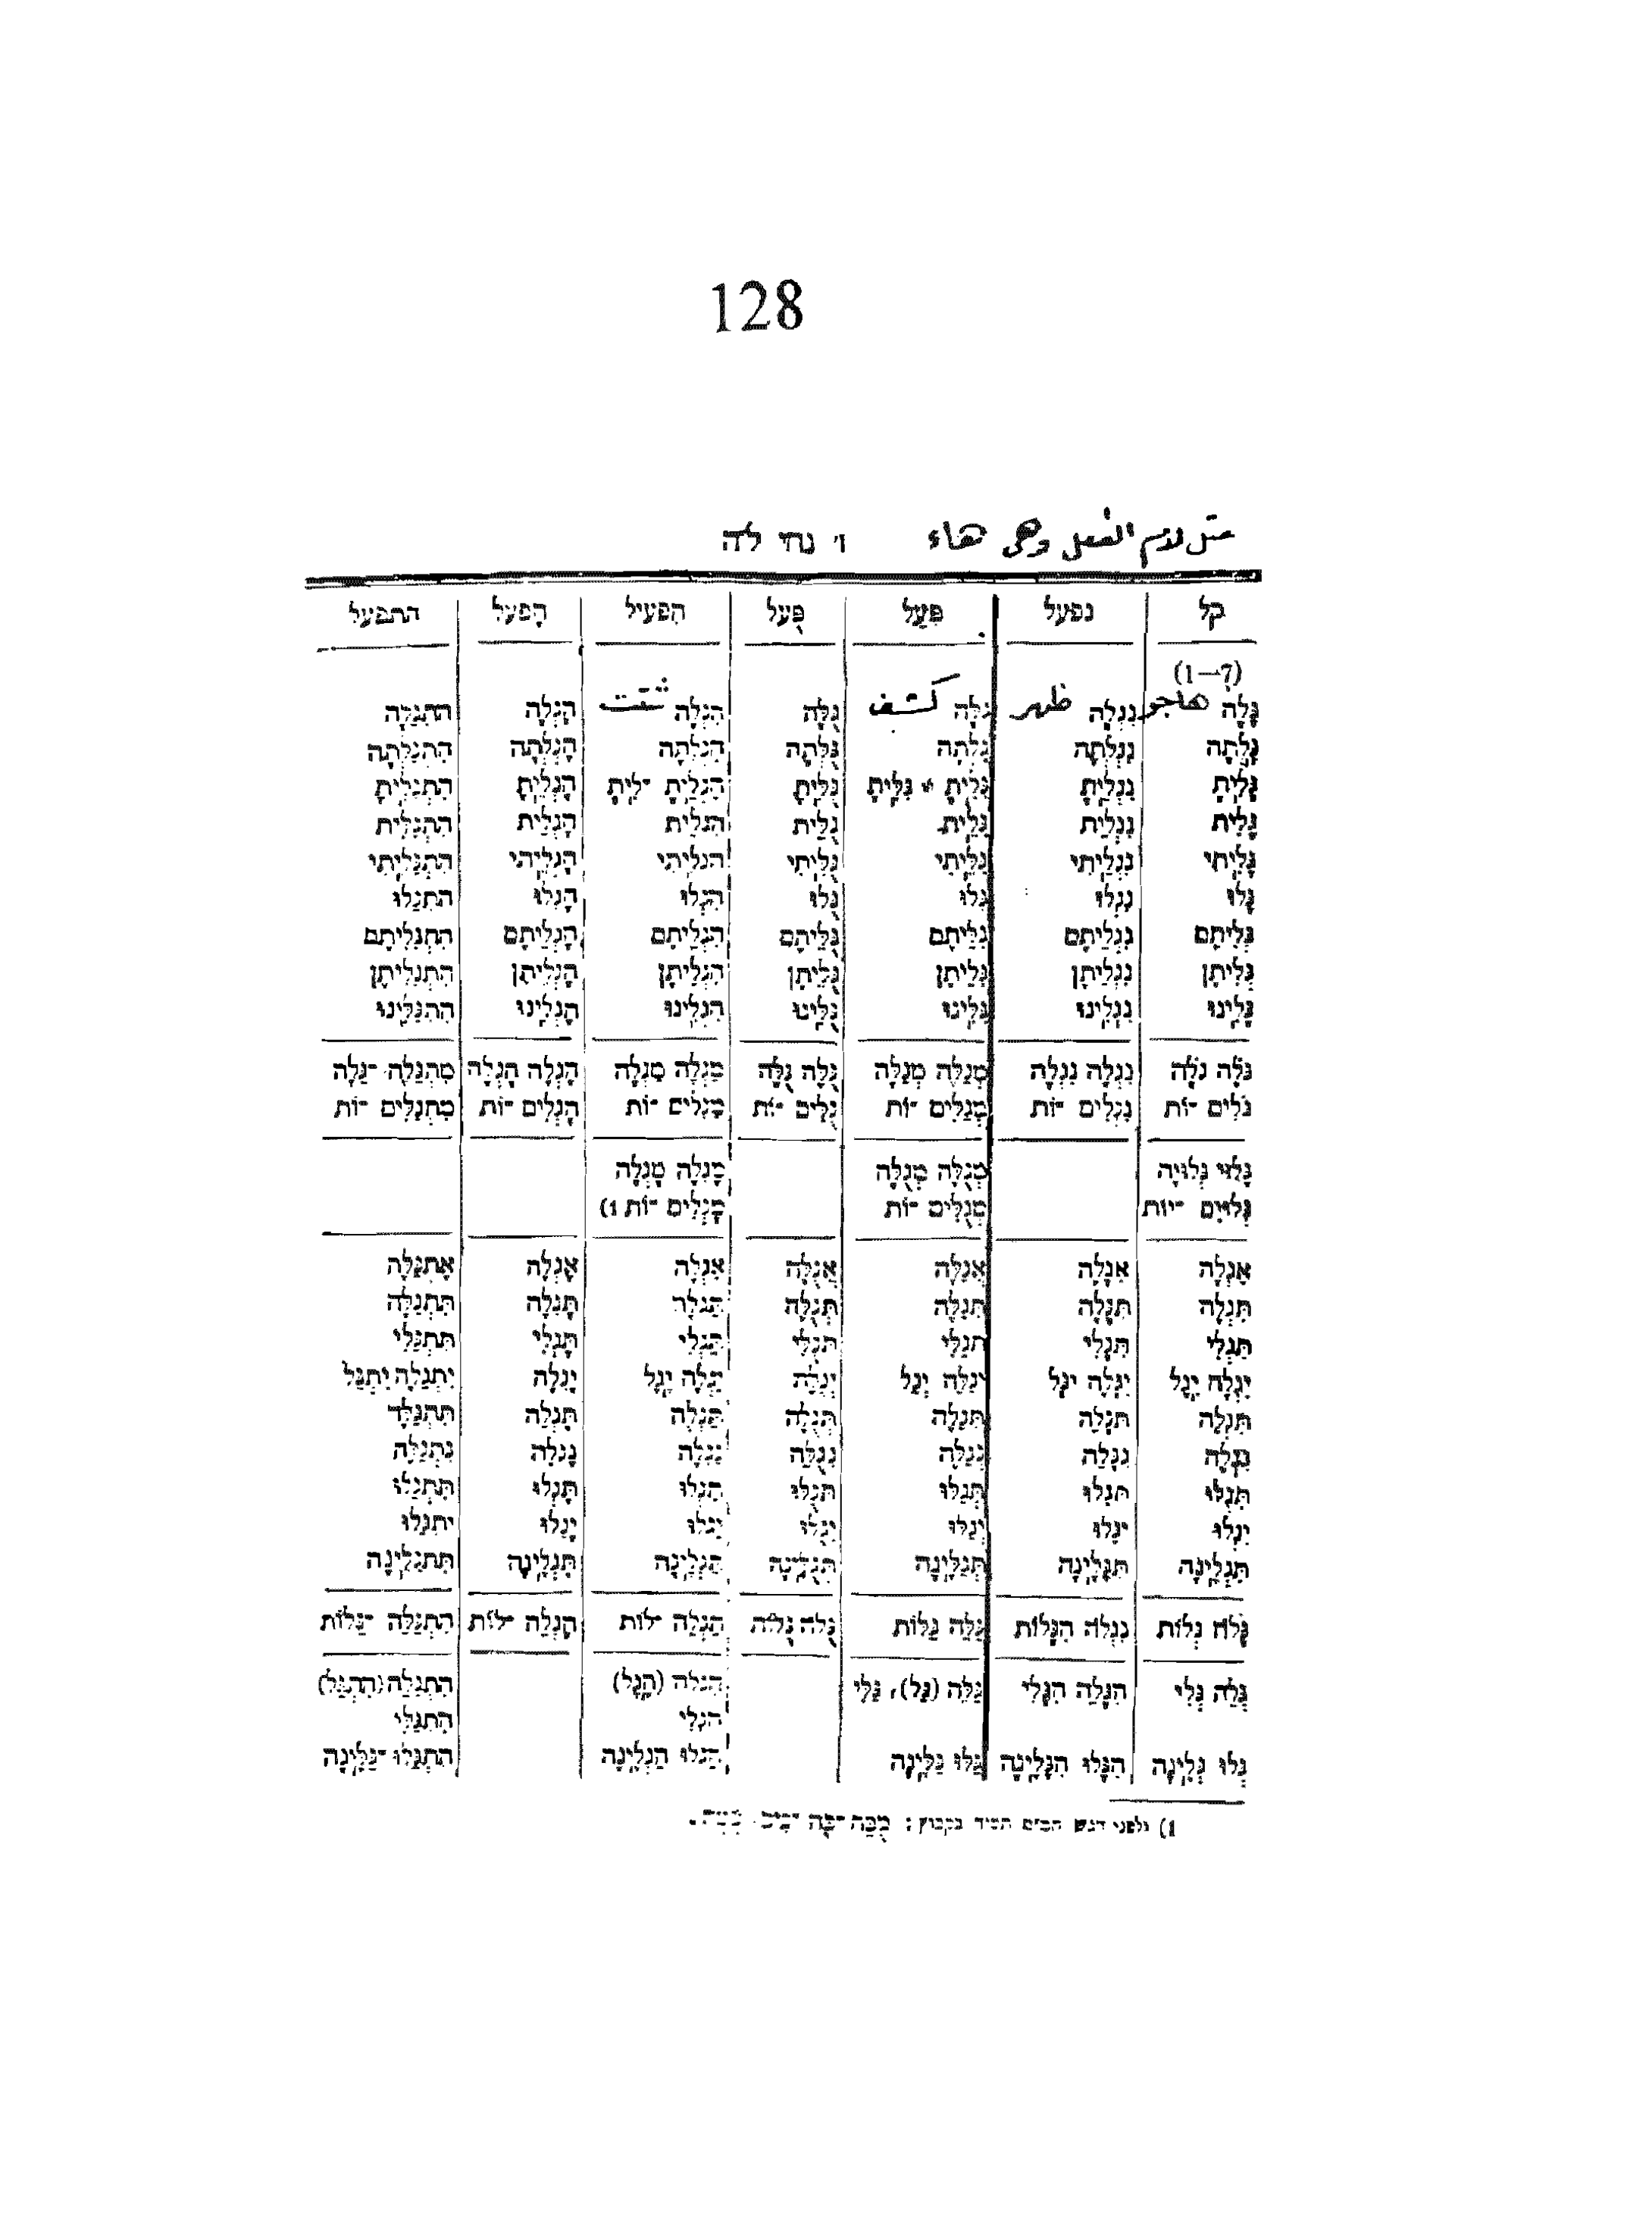 128
معتل لام الفعل وهى هاء ו׳ נחי לה
קל נפעל פִּעַל פֻּעל הִפעיל הָפעל התפעל
(1—7)
גָּלָה هاجر נִגְלָה ظهر גִּלָּה كشف גֻּלָּה הִגְלָה הָגְלָה הִתְגַּלָּה
גָּלְתָה נִגְלְתָה גִּלְּתָה גֻּלְּתָה הִגְלְתָה הָגְלְתָה הִתְגַּלְּתָה
גָּלִיתָ נִגְלֵיתָ גִּלִּיתָ גֻּלֵּיתָ הִגְלֵיתָ ־לִיתָ הָגְלֵיתָ הִתְגַּלֵּיתָ
גָּלִית נִגְלֵית גִּלִּית גֻּלֵּית הִגְלֵית הָגְלֵית הִתְגַּלֵּית
גָּלִיתִי נִגְלֵיתִי גִּלִּיתִי גֻּלֵּיתִי הִגְלֵיתִי הָגְלֵיתִי הִתְגַּלֵּיתִי
גָּלוּ נִגְלוּ גִּלּוּ גֻּלּוּ הִגְלוּ הָגְלוּ הִתְגַּלּוּ
גְּלִיתֶם נִגְלֵיתֶם גִּלִּיתֶם גֻּלֵּיתֶם הִגְלֵיתֶם הָגְלֵיתֶם הִתְגַּלֵּיתֶם
גְּלִיתֶן נִגְלֵיתֶן גִּלִּיתֶן גֻּלֵּיתֶן הִגְלֵיתֶן הָגְלֵיתֶן הִתְגַּלֵּיתֶן
גָּלִינוּ נִגְלֵינוּ גִּלִּינוּ גֻּלֵּינוּ הִגְלֵינוּ הָגְלֵינוּ הִתְגַּלֵּינוּ
גֹּלֶה גֹּלָה נִגְלֶה נִגְלָה מְגַלֶּה מְגַלָּה גֻּלֶּה גֻּלָּה מַגְלֶה מַגְלָה הָגְלֶה הָגְלָה מִתְגַּלֶּה ־גַּלָּה
גֹּלִים ־וֹת נִגְלִים ־וֹת מְגַלִּים ־וֹת גֻּלִּים ־וֹת מַגְלִים ־וֹת הָגְלִים ־וֹת מִתְגַּלִּים ־וֹת
גָּלוּי גְּלוּיָה מְגֻלֶּה מְגֻלָּה מָגְלֶה מָגְלָה
גְּלוּיִים ־יוֹת מְגֻלִּים ־וֹת מָגְלִים ־וֹת (1
אֶגְלֶה אִגָּלֶה אֲגַלֶּה אֲגֻלֶּה אַגְלֶה אָגְלֶה אֶתְגַּלֶּה
תִּגְלֶה תִּגָּלֶה תְּגַלֶּה תְּגֻלֶּה תַּגְלֶה תָּגְלֶה תִּתְגַּלֶּה
תִּגְלִי תִּגָּלִי תְּגַלִּי תְּגֻלִּי תַּגְלִי תָּגְלִי תִּתְגַּלִּי
יִגְלֶה יִגֶל יִגָּלֶה יִגָּל יְגַלֶּה יְגַל יְגֻלֶּה יַגְלֶה יֶגֶל יָגְלֶה יִתְגַּלֶּה יִתְגַּל
תִּגְלֶה תִּגָּלֶה תְּגַלֶּה תְּגֻלֶּה תַּגְלֶה תָּגְלֶה תִּתְגַּלֶּה
נִגְלֶה נִגָּלֶה נְגַלֶּה נְגֻלֶּה נַגְלֶה נָגְלֶה נִתְגַּלֶּה
תִּגְלוּ תִּגָּלוּ תְּגַלּוּ תְּגֻלּוּ תַּגְלוּ תָּגְלוּ תִּתְגַּלּוּ
יִגְלוּ יִגָּלוּ יְגַלּוּ יְגֻלּוּ יַגְלוּ יָגְלוּ יִתְגַּלּוּ
תִּגְלֶינָה תִּגָּלֶינָה תְּגַלֶּינָה תְּגֻלֶּינָה תַּגְלֶינָה תָּגְלֶינָה תִּתְגַּלֶּינָה
גָּלֹה גְּלוֹת נִגְלֹה הִגָּלוֹת גַּלֵּה גַּלּוֹת גֻּלֹּה גֻּלּוֹת הַגְלֵה ־לוֹת הָגְלֵה ־לוֹת הִתְגַּלֵּה ־גַּלּוֹת
גְּלֵה גְּלִי הִגָּלֵה הִגָּלִי גַּלֵּה (גַּל), גַּלִּי הַגְלֵה (הֶגֶל) הִתְגַּלֵּה (הִתְגַּל)
הַגְלִי הִתְגַּלִּי
גְּלוּ גְּלֶינָה הִגָּלוּ הִגָּלֶינָה גַּלּוּ גַּלֶּינָה הַגְלוּ הַגְלֶינָה הִתְגַּלּוּ ־גַּלֶּינָה
1) ולפני דגש המ״ם תמיד בקבוץ: